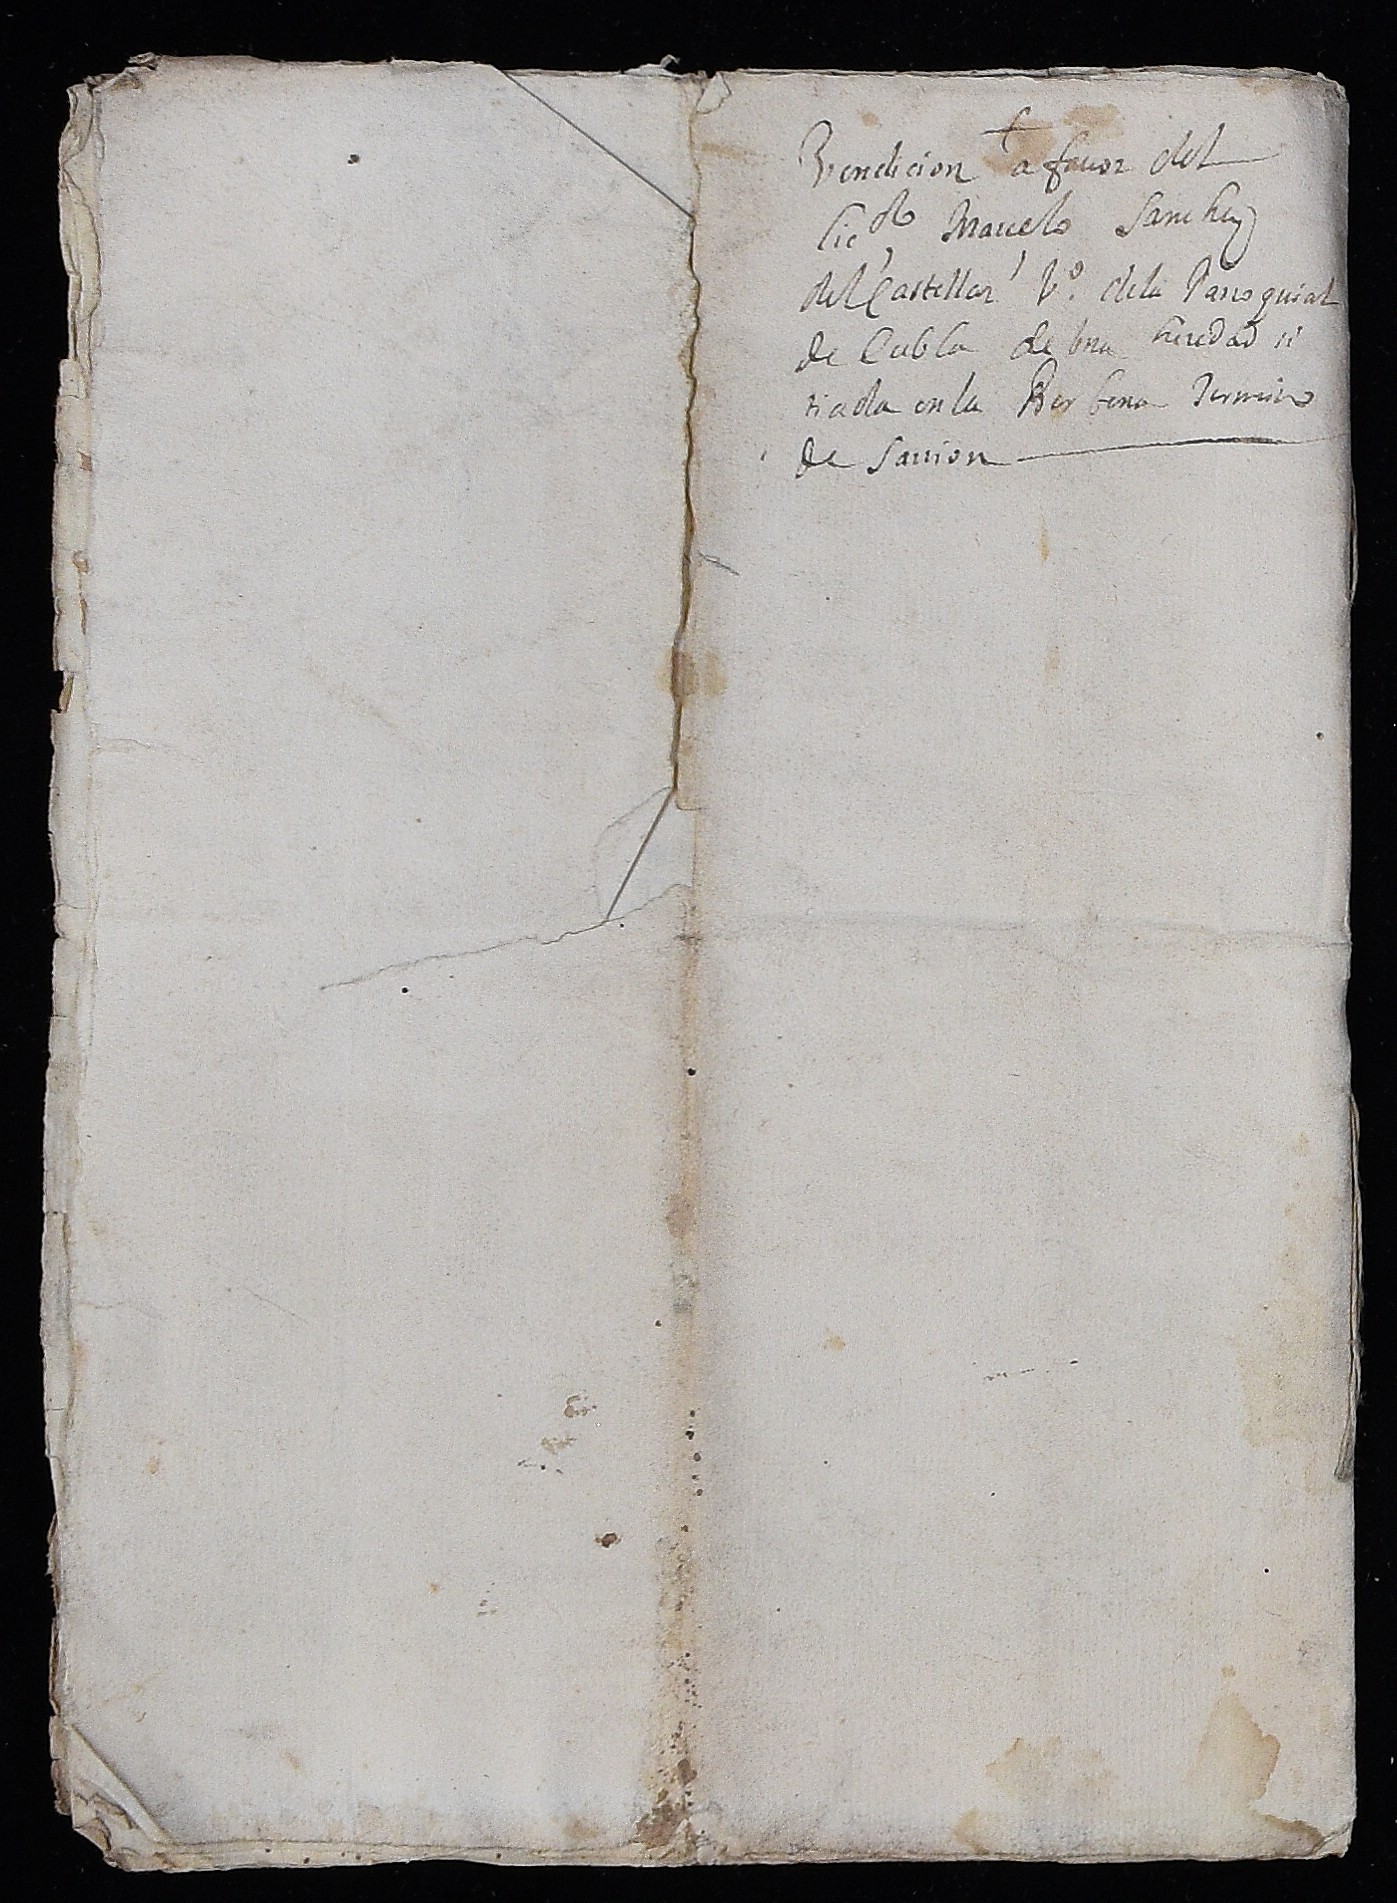 +
Vendicion a fauor del
lic.do Marcelo Sanchez
del Castellar V.o dela Parroquial
de Cubla de vna heredad si
tiada en la Berbena Termino
de Sarrion